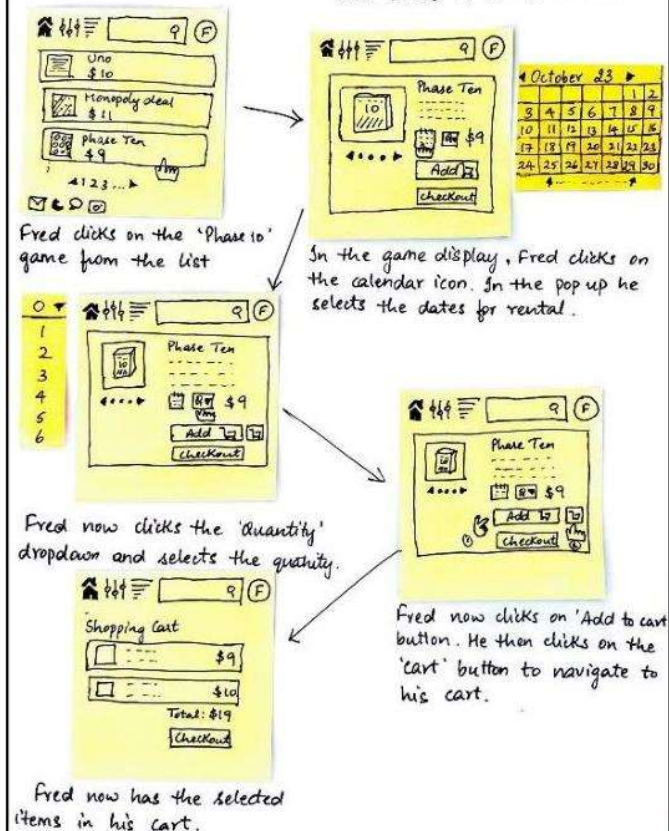 Q F
Uno
$10
Monopoly deal
$11
Phase Ten
$9
1 2 3 ...
Fred clicks on the 'Phase 10'
game from the list
Q F
Phase Ten
10
$9
Add
Checkout
October 23
1 2
3 4 5 6 7 8 9
10 11 12 13 14 15 16
17 18 19 20 21 22 23
24 25 26 27 28 29 30
In the game display, Fred clicks on
the calendar icon. In the pop up he
selects the dates for rental.
0
1
2
3
4
5
6
Q F
Phase Ten
10
$9
Add
Checkout
Fred now clicks the 'Quantity'
dropdown and selects the quantity.
Q F
Phase Ten
10
$9
Add
Checkout
Fred now clicks on 'Add to cart
button. He then clicks on the
'cart' button to navigate to
his cart.
Q F
Shopping Cart
$9
$10
Total: $19
Checkout
Fred now has the selected
items in his cart.